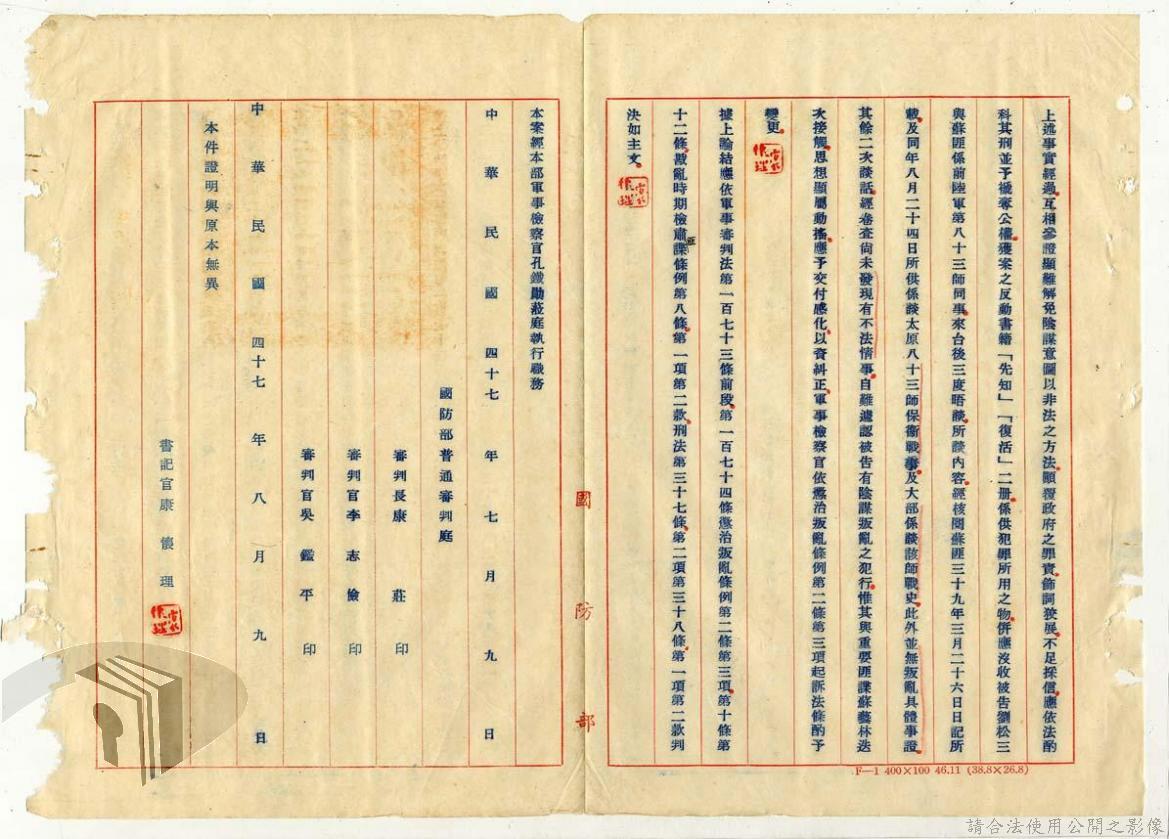 上述事實經過互相參證顯難解免陰謀意圖以非法之方法顛覆政府之罪責飾詞狡展不足採信應依法酌
科其刑並予褫奪公權獲案之反動書籍「先知」「復活」二冊係供犯罪所用之物併應沒收被告劉松三
與蘇匪係前陸軍第八十三師同事來台後三度晤談所談內容經核閱蘇匪三十九年三月二十六日日記所
載及同年八月二十四日所供係談太原八十三師保衛戰事及大部係談該師戰史此外並無叛亂具體事證
其餘二次談話經卷查尚未發現有不法情事自難遽認被告有陰謀叛亂之犯行惟其與重要匪諜蘇藝林迭
次接觸思想顯屬動搖應予交付感化以資糾正軍事檢察官依懲治叛亂條例第二條第三項起訴法條酌予
變更
據上論結應依軍事審判法第一百七十三條前段第一百七十四條懲治叛亂條例第二條第三項第十條第
十二條戡亂時期檢肅匪諜條例第八條第一項第二款刑法第三十七條第二項第三十八條第一項第二款判
決如主文
本案經本部軍事檢察官孔鐵勛蒞庭執行職務
中華民國四十七年七月九日
國防部普通審判庭
審判長康莊印
審判官李志儉印
審判官吳鑑平印
中華民國四十七年八月九日
本件證明與原本無異
書記官康懷理
國防部
F—1 400×100 46.11 (38.8×26.8)
請合法使用公開之影像